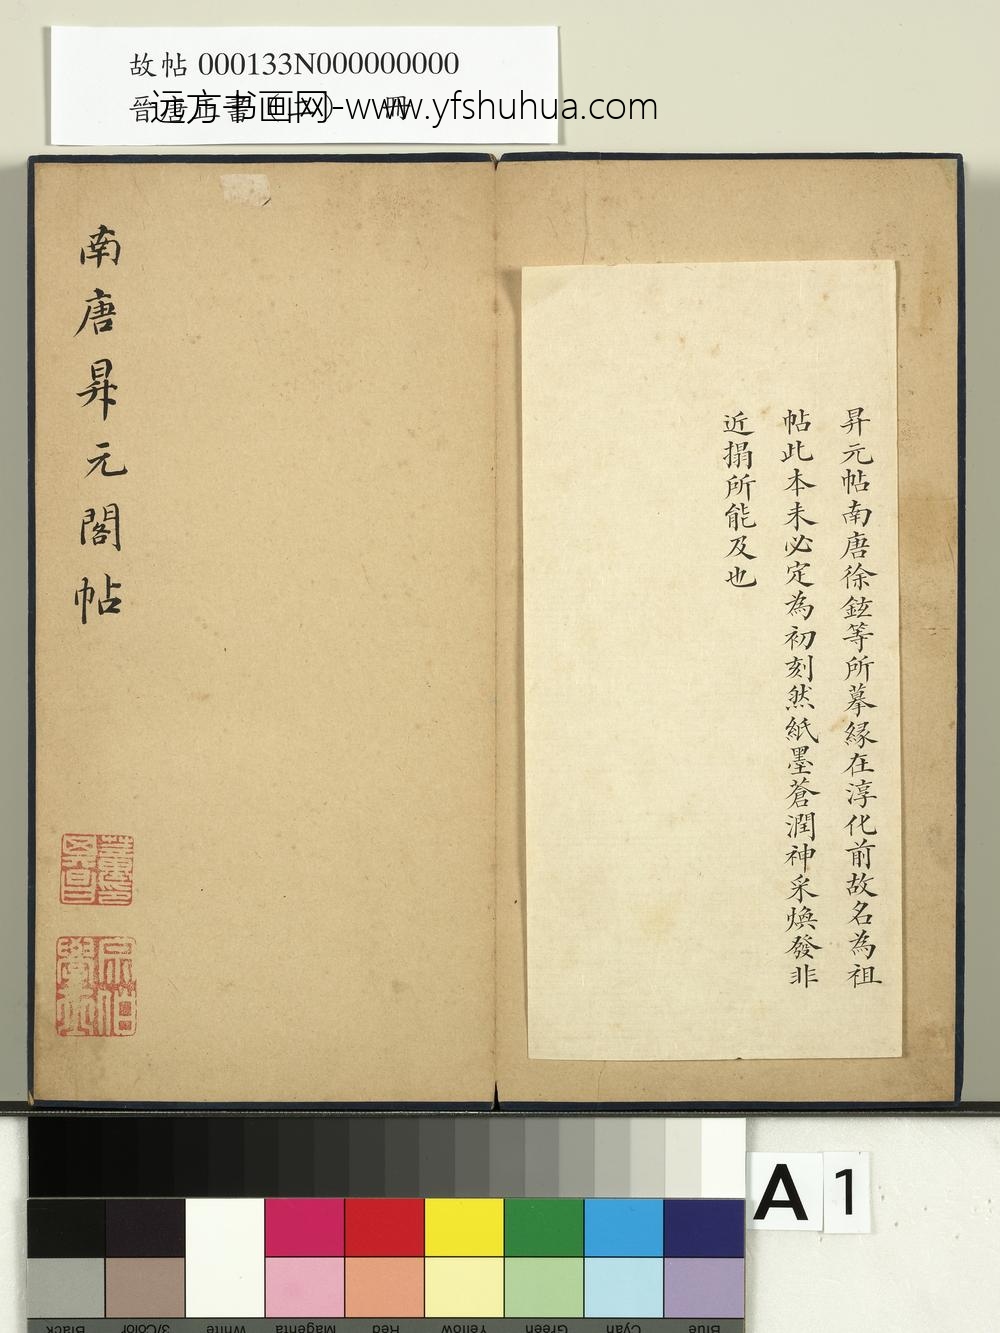 故帖000133N000000000
远方书画网-www.yfshuhua.com
昇元帖南唐徐鉉等所摹緣在淳化前故名為祖
帖此本未必定為初刻然紙墨蒼潤神采煥發非
近搨所能及也
南唐昇元閣帖
A1
Black
3/Color
White
Magenta
Red
Yellow
Green
Cyan
Blue